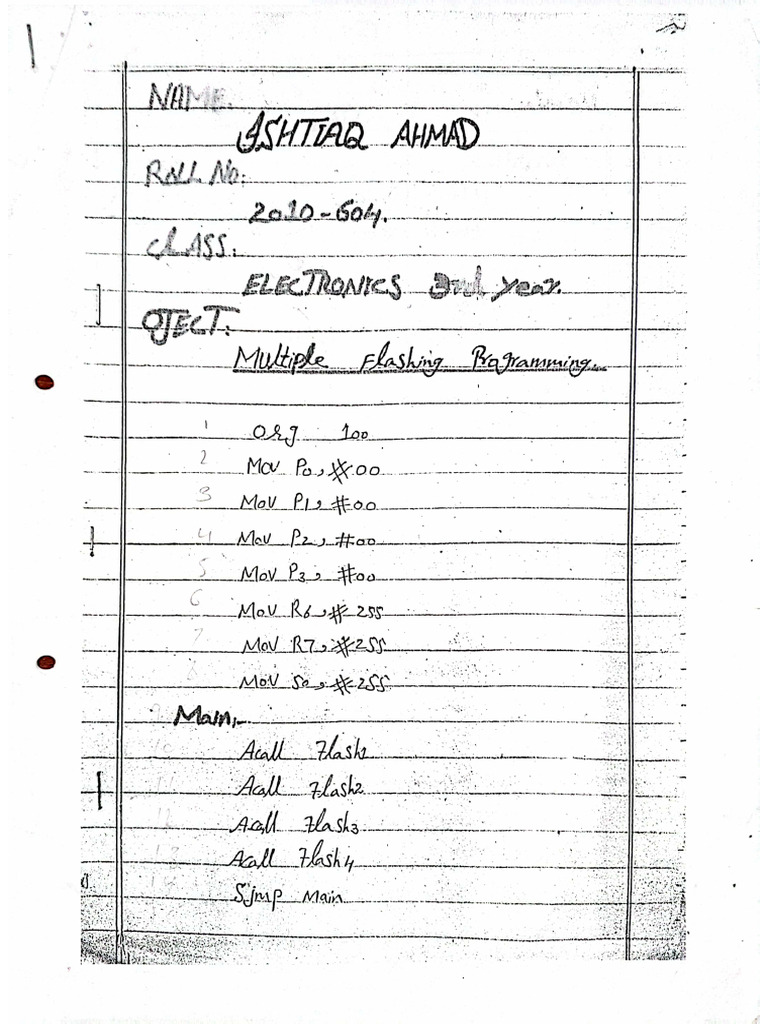 NAME.
ISHTIAQ AHMAD
ROLL NO:
2010-604.
CLASS:
ELECTRONICS 3rd year.
OJECT:
Multiple Flashing Programming
1 Org 100
2 Mov P0, #00
3 Mov P1, #00
4 Mov P2, #00
5 Mov P3, #00
6 Mov R6, #255
7 Mov R7, #255
Mov 50, #255
Main:-
Acall Flash1
Acall Flash2
Acall Flash3
Acall Flash4
Sjmp Main